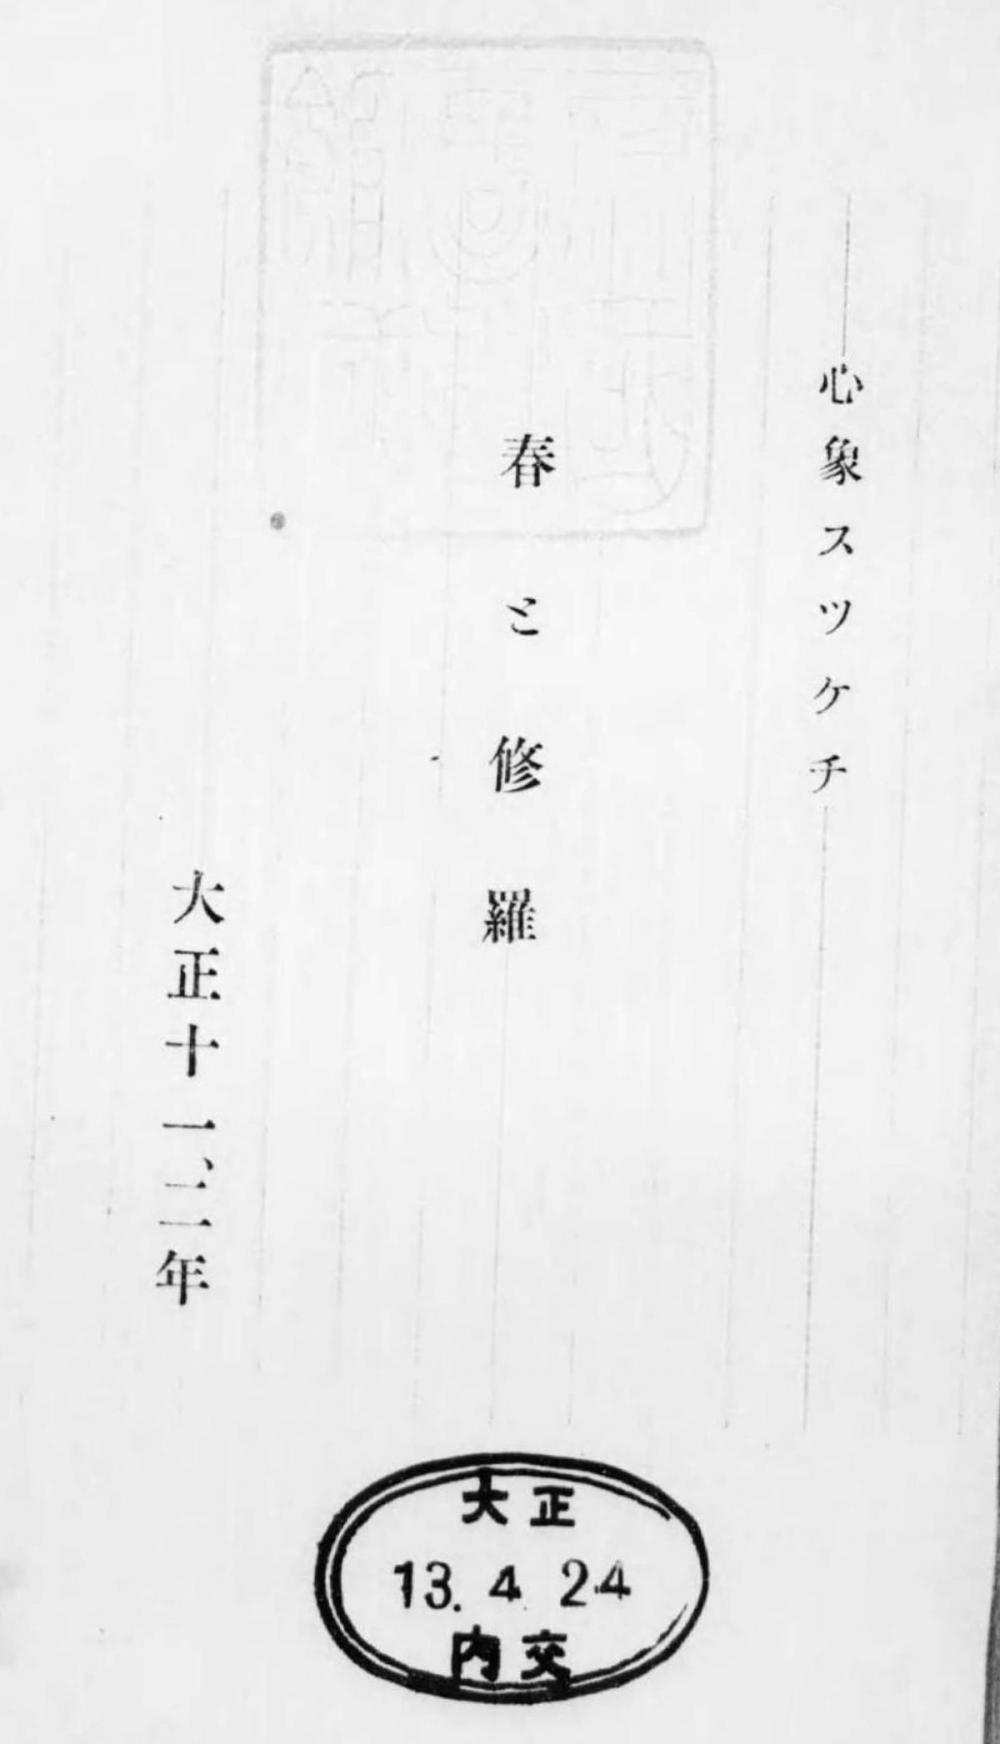 心象スツケチ
春と修羅
大正十一、二年
大正
13. 4. 24
内交